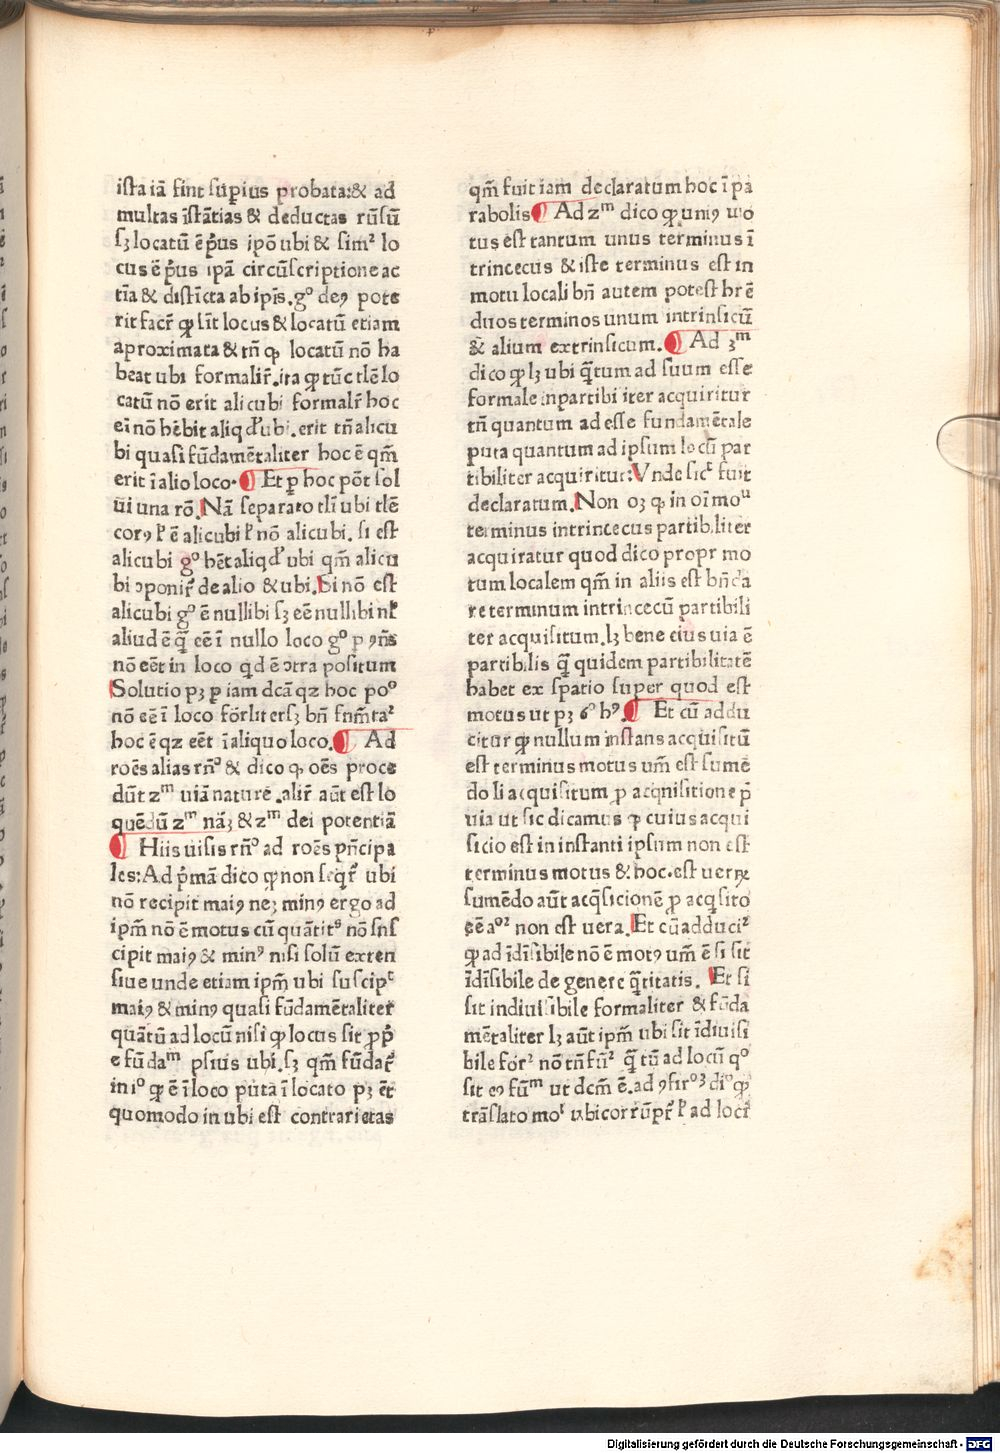 ista iā sint suꝑius probata:& ad
multas īstātias & deductas rūsū
sꝫ locatū ē pͥus ipō ubi & simꝰ lo
cus ē pͥus ipā circūscriptione ac
tīa & distīcta ab ipīs. gͦ deꝰ pote
rit facer̄ ꝙ sīt locus & locatū etiam
aproximata & tn̄ ꝙ locatū nō ha
beat ubi formalir̄. ita ꝙ tūc tlē lo
catū nō erit alicubi formalr̄ hoc
ei nō hēbit aliqd̓ ubi. erit tn̄ alicu
bi quasi fūdamētaliter hoc ē qm̄
erit ī alio loco. Et ꝑ hoc pōt sol
ui una rō. Nā separato tli ubi tlē
corꝰ ł ē alicubi ł nō alicubi. si est
alicubi gͦ hēt aliqd̓ ubi qm̄ alicu
bi ↄponir̄ de alio & ubi. Si nō est
alicubi gͦ ē nullibi sꝫ eē nullibi nł
aliud ē q̄ eē ī nullo loco gͦ p ꝯn̄s
nō eēt in loco qd ē ↄtra positum
Solutio pꝫ ꝑ iam dcā qz hoc poͦ
nō eē ī loco forliter sꝫ bn̄ fnm̄taꝰ
hoc ē qz eēt ī aliquo loco. Ad
roēs alias rn̄ͦ & dico ꝙ oēs proce
dūt zᵐ uiā nature. alir̄ aūt est lo
quēdū zᵐ nāꝫ & zᵐ dei potentiā
Hiis uisis rn̄ͦ ad roēs pn̄cipa
les: Ad pͥmā dico ꝙ non seqr̄ ubi
nō recipit maiꝰ neꝫ minꝰ ergo ad
ipm̄ nō ē motus cū quātitˢ nō sus
cipit maiꝰ & minꝰ nisi solū exten
siue unde etiam ipm̄ ubi suscipᵗ
maiꝰ & minꝰ quasi fūdamētaliter
quātū ad locū nisi ꝙ locus sit ꝓpͥ
e fūdaᵐ psius ubi. sꝫ qm̄ fūdar̄
in iͦ ꝙ ē ī loco puta ī locato pꝫ ēt
quomodo in ubi est contrarietas
qm̄ fuit iam declaratum hoc ī pa
rabolis Ad zᵐ dico ꝙ uniꝰ mo
tus est tantum unus terminus ī
trincecus & iste terminus est in
motu locali bn̄ autem potest hrē
duos terminos unum intrinsicū
& alium extrinsicum. Ad 3ᵐ
dico ꝙ lꝫ ubi q̄tum ad suum esse
formale inpartibi iter acquiritur
tn̄ quantum ad esse fundamētale
puta quantum ad ipsum locū par
tibiliter acquiritur: Vnde sicᵗ fuit
declaratum. Non oꝫ ꝙ in oī moᵘ
terminus intrincecus partibiliter
acquiratur quod dico propr mo
tum localem qm̄ in aliis est bn̄ da
re terminum intrincecū partibili
ter acquisitum, lꝫ bene eius uia ē
partibilis q̄ quidem partibilitatē
habet ex spatio super quod est
motus ut pꝫ 6ͦ hꝰ. Et cū addu
citur ꝙ nullum instans acquisitū
est terminus motus um̄ est sumē
do li acquisitum ꝓ acquisitione p̄
uia ut sic dicamus ꝙ cuius acqui
sicio est in instanti ipsum non est
terminus motus & hoc. est ueꝝ
sumēdo aūt acq̄sicionē ꝓ acq̄sito
eē aͦꝰ non est uera. Et cū adduciꝰ
ꝙ ad īdīsibile nō ē motꝰ um̄ ē si sit
īdīsibile de genere q̄titatis. Et si
sit indiuisibile formaliter & fūda
mētaliter lꝫ aūt ipm̄ ubi sit īdiuisi
bile forꝰ nō tn̄ fūꝰ q̄tū ad locū qͦ
sit eꝰ fūᵐ ut dcm̄ ē. ad ꝯfirͦꝫ diͦ ꝙ
trāslato moͬ ubi corrūpr̄ ł ad locū
Digitalisierung gefördert durch die Deutsche Forschungsgemeinschaft - DFG